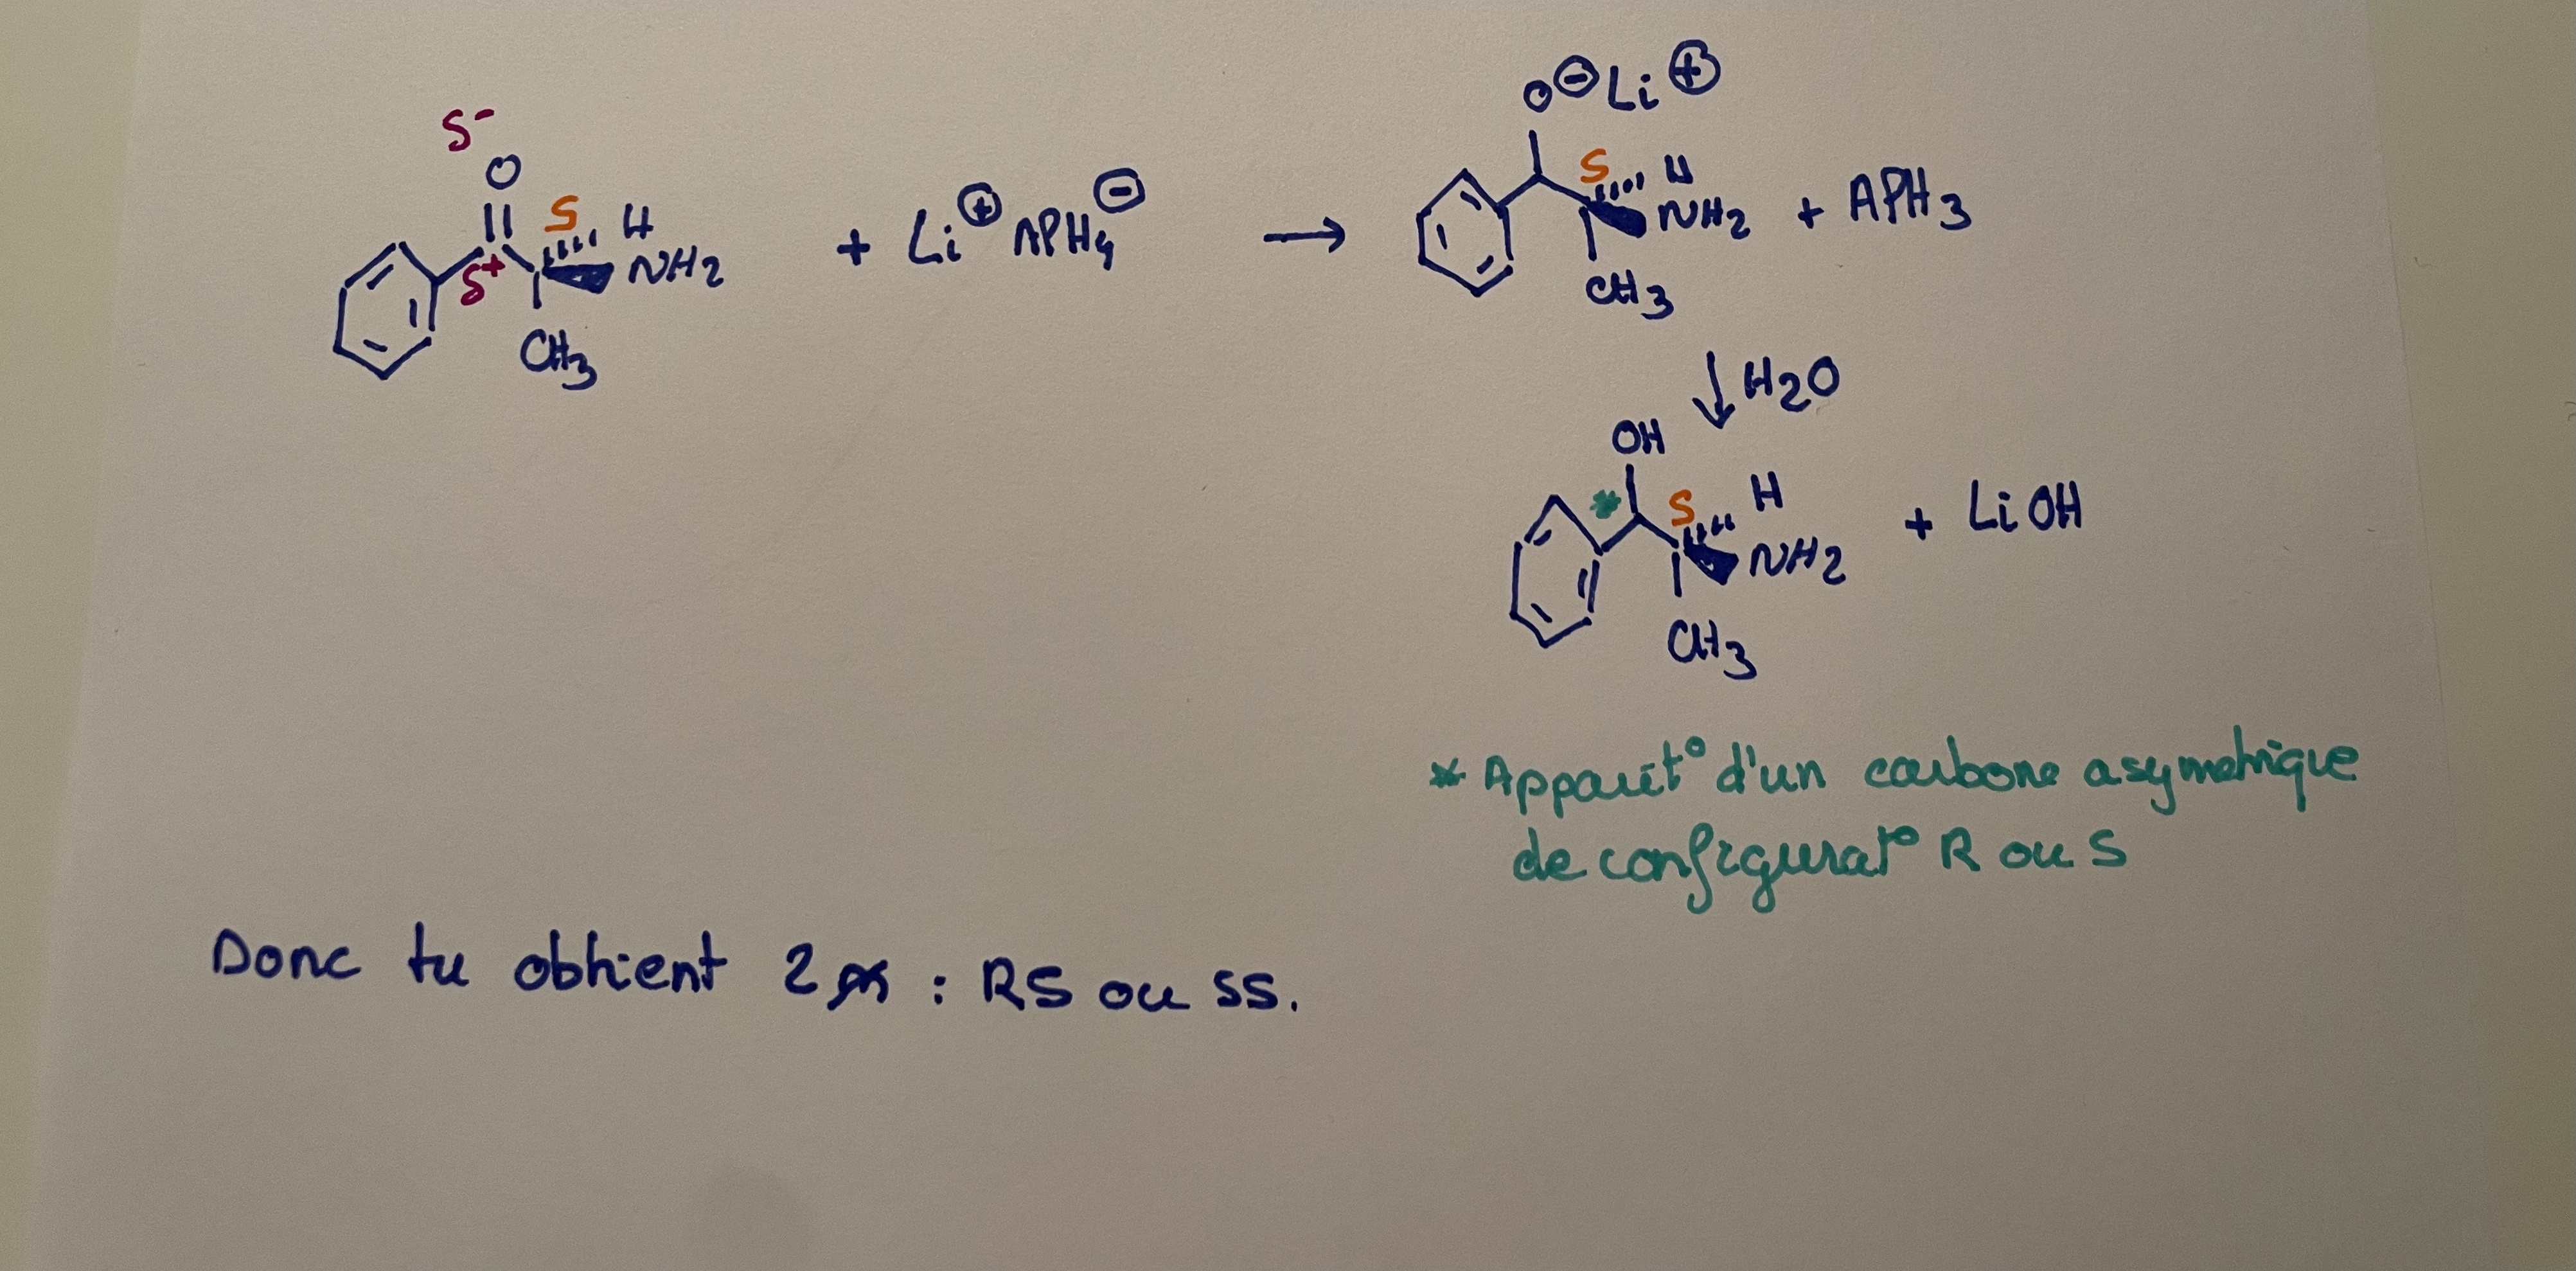 δ-
O
S H
δ+ NH2
CH3
+ Li⊕ APH4⊖ →
O⊖Li⊕
S H
NH2 + APH3
CH3
↓ H2O
OH
* S H
NH2 + LiOH
CH3
* Apparit° d'un carbone asymetrique
de configurat° R ou S
Donc tu obtient 2 : RS ou SS.